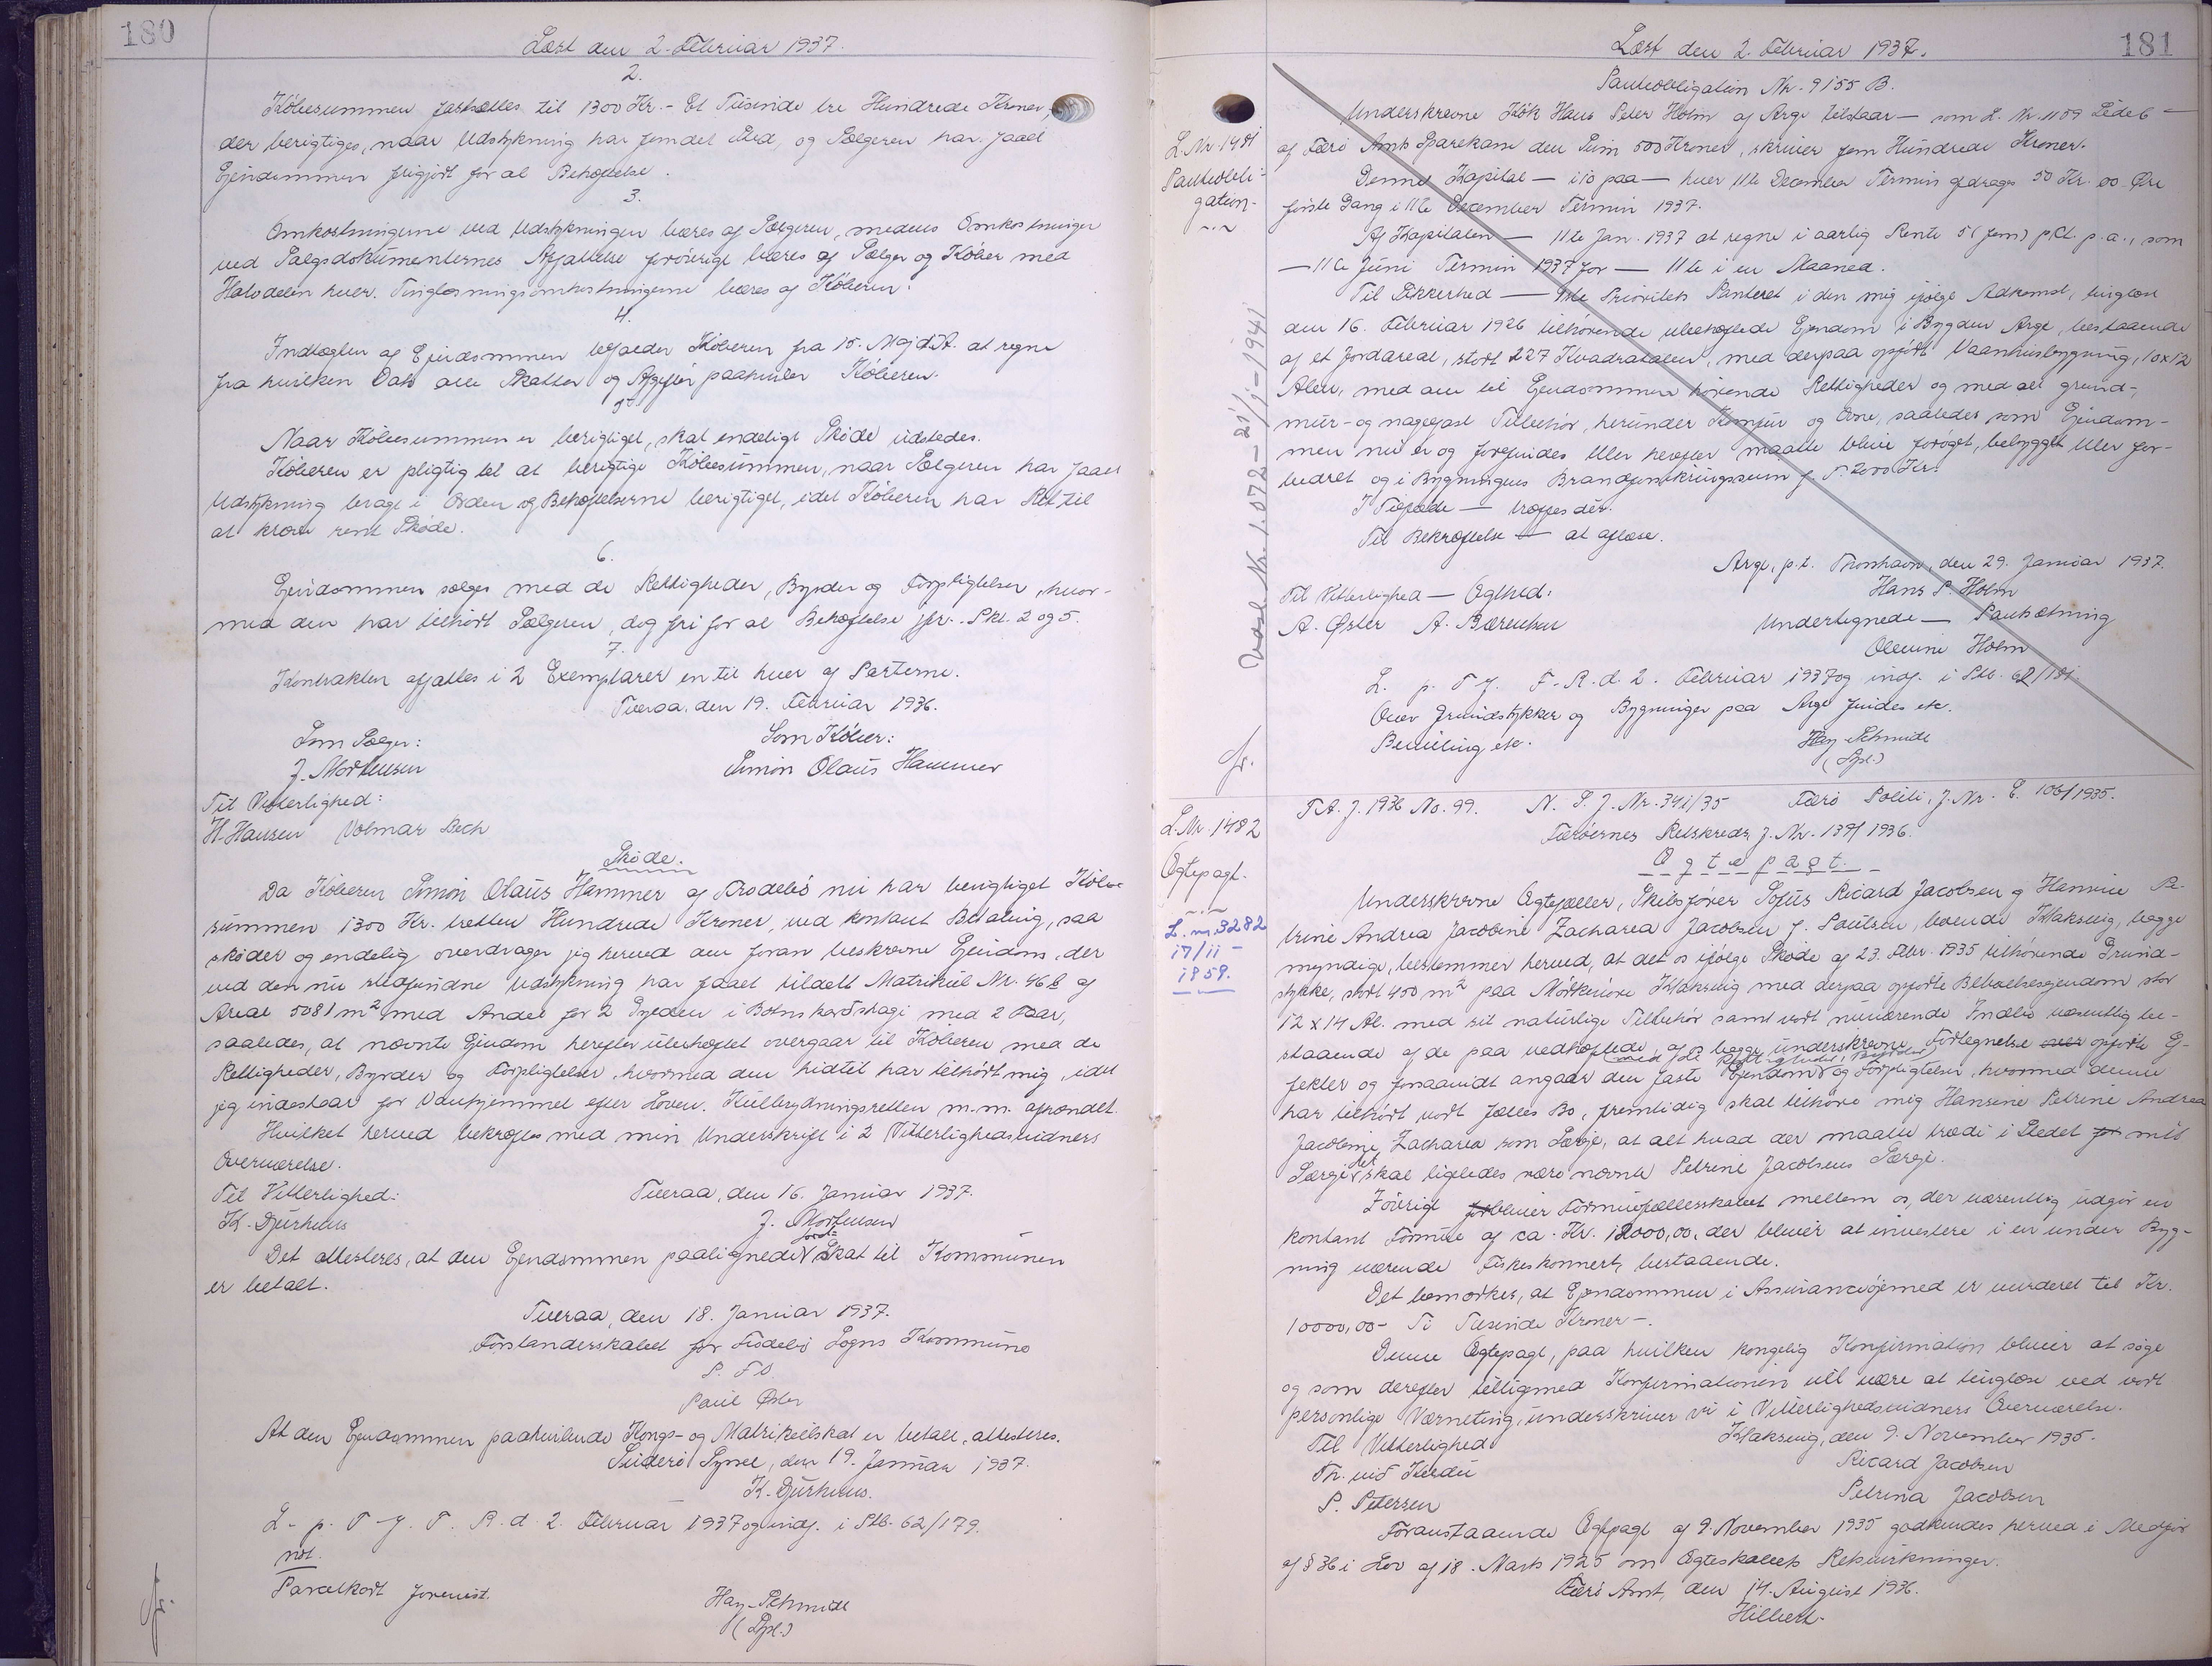 180
Læst den 2. Februar 1937.
2.
Købesummen fastsættes til 1300 Kr. - Et Tusinde tre Hundrede Kroner,
der berigtiges, naar Udstykning har fundet Sted, og Sælgeren har faaet
Ejendommen frigjort for al Behæftelse.
3.
Omkostningerne ved Udstykningen bæres af Sælgeren, medens Omkostninger
ved Salgsdokumenternes Affattelse forøvrigt bæres af Sælger og Køber med
Halvdelen hver. Tinglæsningsomkostningerne bæres af Køberen.
4.
Indtægten af Ejendommen tilfalder Køberen fra 15. Maj d.A. at regne
fra hvilken Dato alle Skatter og Afgifter paahviler Køberen.
5.
Naar Købesummen er berigtiget, skal endeligt Skøde udstedes.
Køberen er pligtig til at berigtige Købesummen, naar Sælgeren har faaet
Udstykning bragt i Orden og Behæftelserne berigtiget, idet Køberen har Ret til
at kræve rent Skøde.
6.
Ejendommen sælges med de Rettigheder, Byrder og Forpligtelser, hvor-
med den har tilhørt Sælgeren, dog fri for al Behæftelse jfr. Pkt. 2 og 5.
7.
Kontrakten affattes i 2 Exemplarer en til hver af Parterne.
Tveraa, den 19. Februar 1936.
Som Sælger: Som Køber:
J. Mortensen Simon Olaus Hammer
Til Vitterlighed:
H. Hansen Volmar Bech
Skøde.
Da Køberen Simon Olaus Hammer af Frodebø nu har berigtiget Købe
summen 1300 Kr. tretten Hundrede Kroner, ved kontant Betaling, saa
skøder og endelig overdrager jeg herved den foran beskrevne Ejendom, der
ved den nu stedfundne Udstykning har faaet tildelt Matrikul Nr. 46 b af
Areal 5081 m² med Andel for 2 Gylden i Botnskardshagi med 2 Faar,
saaledes, at nævnte Ejendom herefter ubehæftet overgaar til Køberen med de
Rettigheder, Byrder og Forpligtelser, hvormed den hidtil har tilhørt mig, idet
jeg indestaar for Vanhjemmel efter Loven. Kulbrydningsretten m.m. afhændet.
Hvilket herved bekræftes med min Underskrift i 2 Vitterlighedsvidners
Overværelse.
Til Vitterlighed: Tveraa, den 16. Januar 1937.
K. Djurhuus J. Mortensen
Det attesteres, at den Ejendommen paalignede Skat til Kommunen
er betalt.
Tveraa, den 18. Januar 1937.
Forstanderskabet for Frodebø Sogns Kommune
P. F. S.
Paul Øster
At den Ejendommen paahvilende Kongs- og Matrikelskat er betalt, attesteres.
Suderø Syssel, den 19. Januar 1937.
K. Djurhuus.
L. p. T. f. F. R. d. 2. Februar 1937 og indf. i Skb. 62/179.
not.
Parcelkort forevist.
Hay-Schmidt
(Dpl.)
fr.
181
Læst den 2. Februar 1937.
L. Nr. 1481
Panteobli-
gation.
Vasl. Nr. 1.072 - 21/1-1941
fr.
Panteobligation Nr. 9155 B.
Underskrevne Kok Hans Peter Holm af Arge tilstaar — som L. Nr. 1159 Side 6 —
af Færø Amts Sparekasse den Sum 500 Kroner, skriver fem Hundrede Kroner.
Denne Kapital — i to paa — hver 11te December Termin afdrages 50 Kr. 00 Øre
første Gang i 11te December Termin 1937.
Af Kapitalen — 11te Jan. 1937 at regne i aarlig Rente 5 (fem) pCt. p.a., som
— 11te Juni Termin 1937 for — 11te i en Maaned.
Til Sikkerhed — 1ste Prioritets Panteret i den mig ifølge Adkomst, tinglæst
den 16. Februar 1926 tilhørende ubehæftede Ejendom i Bygden Arge, bestaaende
af et Jordareal, stort 227 Kvadratalen, med derpaa opført Vaaningsbygning, 10 x 12
Alen, med alle til Ejendommen hørende Rettigheder og med alt grund-,
mur- og nagelfast Tilbehør, herunder Komfur og Ovne, saaledes som Ejendom-
men nu er og forefindes eller herefter maatte blive forøget, bebygget eller for-
bedret og i Bygningens Brandforsikringssum f. T. 2000 Kr.
I Tilfælde — træffes dér.
Til Bekræftelse — at aflæse.
Arge, p.t. Thorshavn, den 29. Januar 1937.
Til Vitterlighed — Ægthed: Hans P. Holm
A. Øster A. Bærentsen Undertegnede — Pantsætning
Olevine Holm
L. p. T. f. F. R. d. 2. Februar 1937 og indf. i Skb. 62/181.
Over Grundstykker og Bygninger paa Arge findes etc.
Bevilling etc. Hay-Schmidt
(Dpl.)
L. Nr. 1482
Ægtepagt.
L. nr. 3282
17/11 -
1959.
T.A. J. 1936 No. 99. N. S. J. Nr. 341/35 Færø Politi, J. Nr. E 106/1935.
Færøernes Retskreds J. Nr. 139/1936.
Ægtepagt.
Underskrevne Ægtefæller, Skibsfører Sofus Ricard Jacobsen og Hansine Pe-
trine Andrea Jacobine Zacharea Jacobsen f. Poulsen, boende Klaksvig, begge
myndige, bestemmer herved, at det os ifølge Skøde af 23. Febr. 1935 tilhørende Grund-
stykke, stort 450 m² paa Mørkeøre Klaksvig med derpaa opførte Beboelsesejendom stor
12 x 14 Al. med sit naturlige Tilbehør samt vort nuværende Indbo væsentlig be-
staaende af de paa vedhæftede, af os begge underskrevne Fortegnelse over opførte Ef-
fekter og forsaavidt angaar den faste Ejendom med de Rettigheder, Byrder og Forpligtelser, hvormed denne
har tilhørt vort fælles Bo, fremtidig skal tilhøre mig Hansine Petrine Andrea
Jacobine Zacharea som Særeje, at alt hvad der maatte træde i Stedet for mit
Særeje skal ligeledes være nævnte Petrine Jacobsens Særeje.
Iøvrigt forbliver Formuefællesskabet mellem os, der væsentlig udgør en
kontant Formue af ca. Kr. 12000,00, der bliver at investere i en under Byg-
ning værende Fiskeskonnert, bestaaende.
Det bemærkes, at Ejendommen i Assuranceøjemed er vurderet til Kr.
10000,00 - Ti Tusinde Kroner -.
Denne Ægtepagt, paa hvilken kongelig Konfirmation bliver at søge
og som derefter tilligemed Konfirmationen vil være at tinglæse ved vort
personlige Værneting, underskriver vi i Vitterlighedsvidners Overværelse.
Til Vitterlighed Klaksvig, den 9. November 1935.
Th. við Keldu Ricard Jacobsen
P. Petersen Petrina Jacobsen
Foranstaaende Ægtepagt af 9. November 1935 godkendes herved i Medfør
af § 36 i Lov af 18. Marts 1925 om Ægteskabets Retsvirkninger.
Færø Amt, den 14. August 1936.
Hilbert.